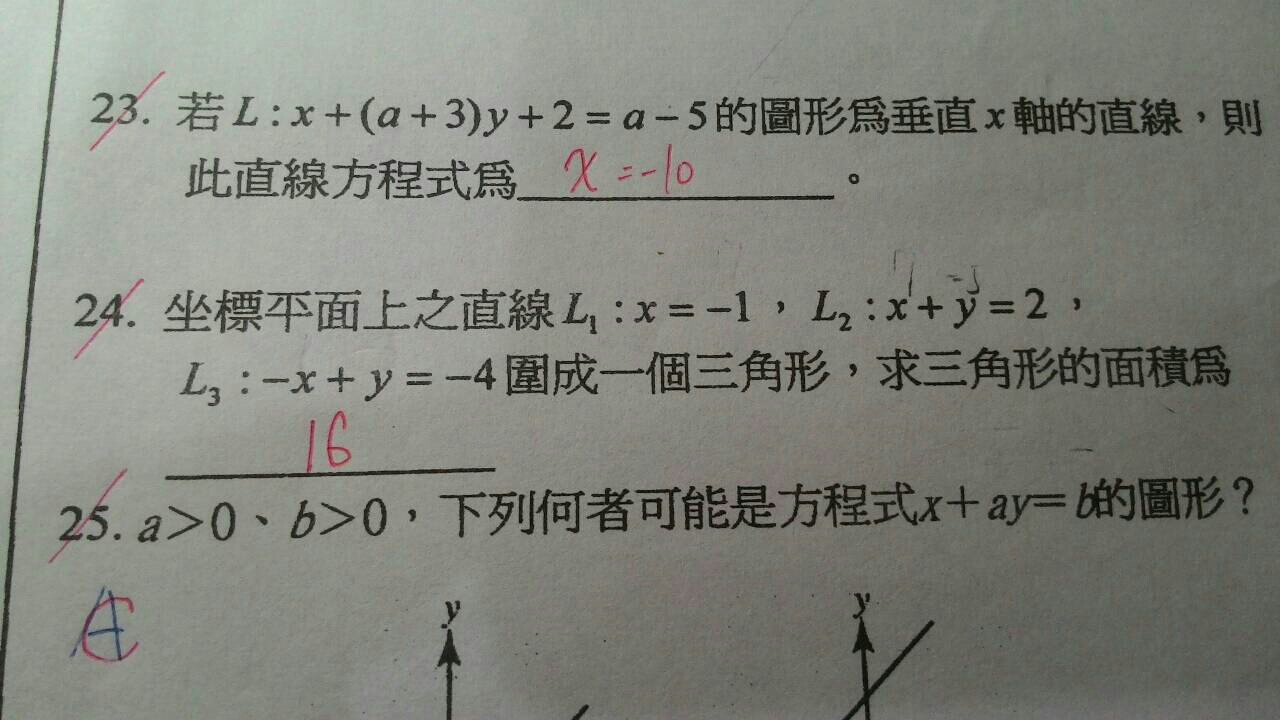 23. 若 L : x + (a + 3)y + 2 = a − 5 的圖形為垂直 x 軸的直線，則
此直線方程式為 x = -10 。
24. 坐標平面上之直線 L₁ : x = −1， L₂ : x + y = 2，
L₃ : −x + y = −4 圍成一個三角形，求三角形的面積為
16
25. a＞0、b＞0，下列何者可能是方程式x＋ay＝b的圖形？
C
y y